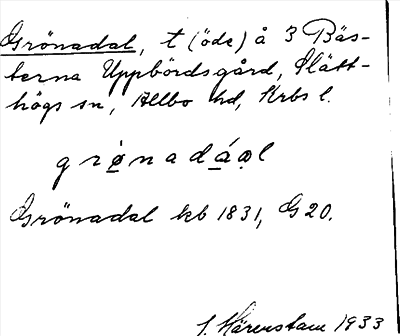 Grönadal, t (öde) å 3 Bäs-
terna Uppbördsgård, Slätt-
högs sn, Allbo hd, Krbs l.
grönadáal
Grönadal kb 1831, G 20.
1933